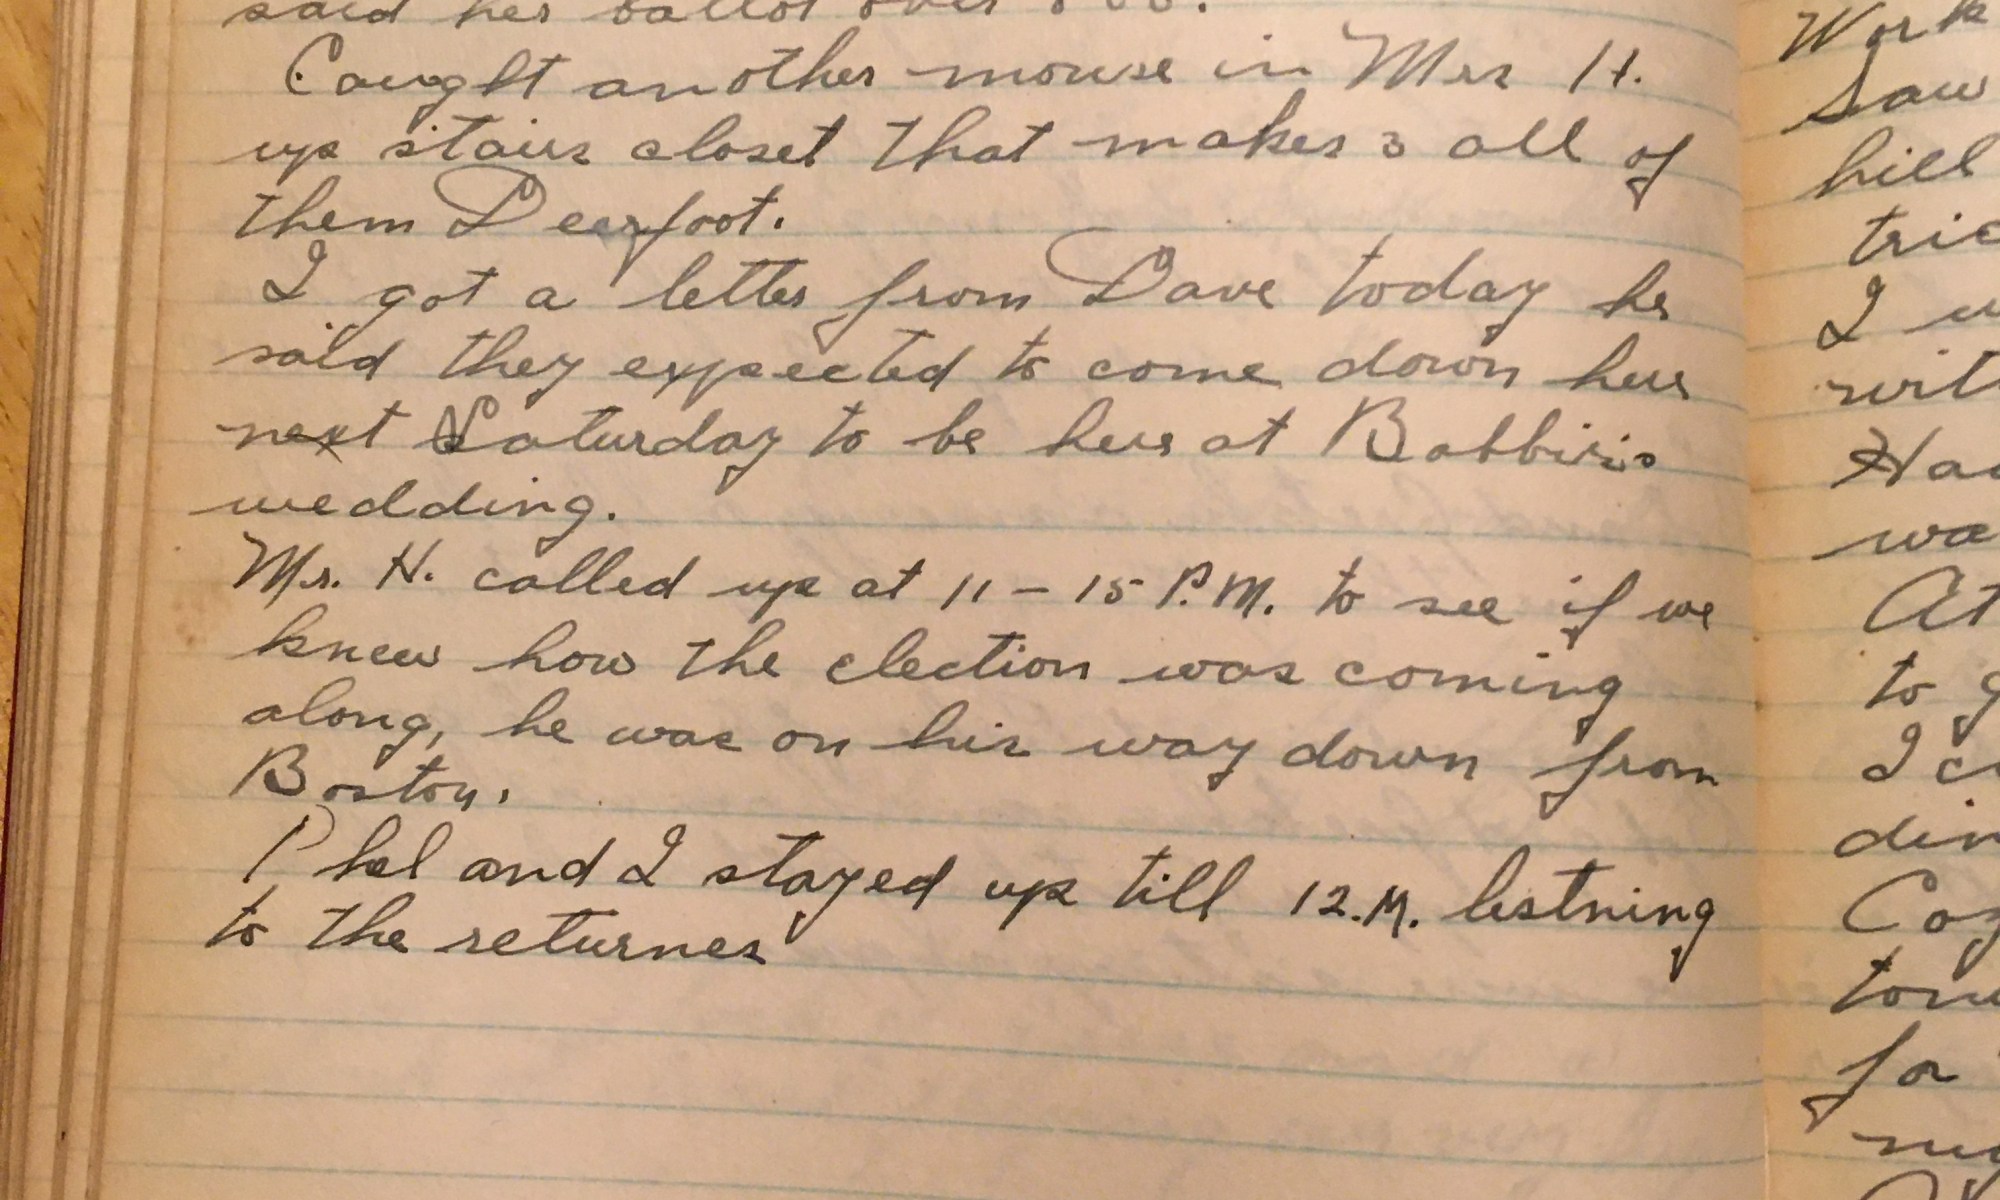 said her ballot over
Caught another mouse in Mrs H.
up stairs closet that makes 3 all of
them Deerfoot.
I got a letter from Dave today he
said they expected to come down here
next Saturday to be here at
wedding.
Mr. H. called up at 11-15 P.M. to see if we
knew how the election was coming
along, he was on his way down from
Boston.
Phel and I stayed up till 12.M. listning
to the returnes
Work
Saw
hill
I
At
to
I
for